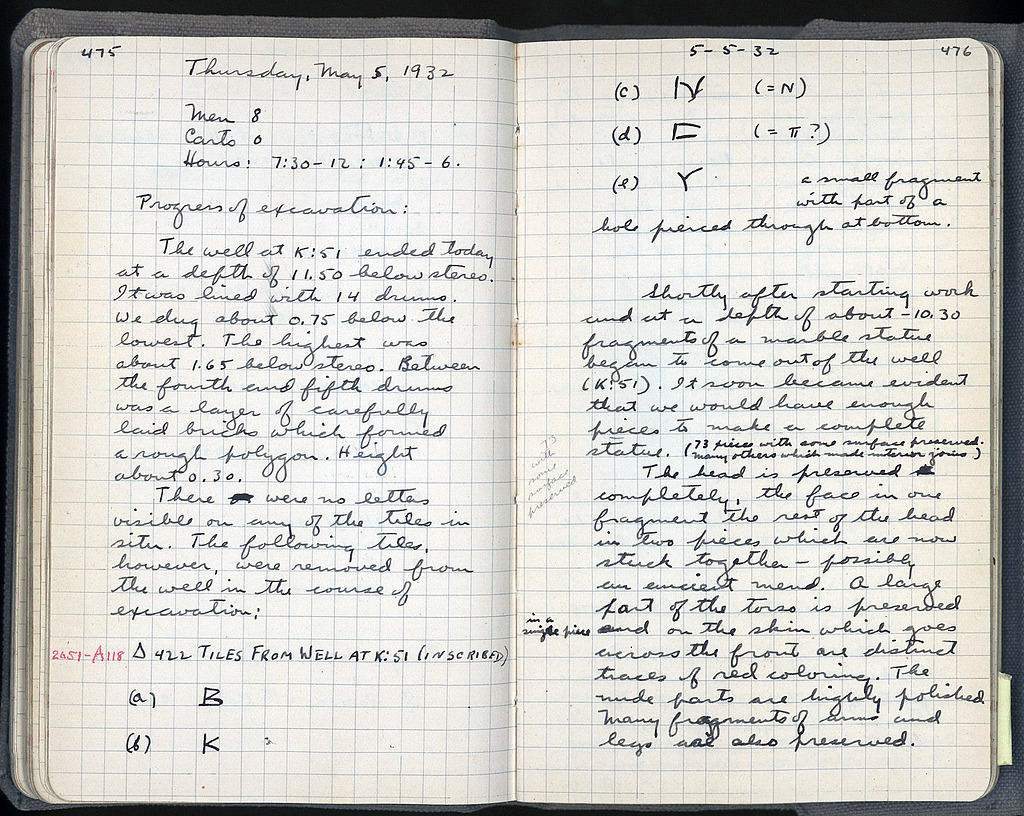 475
Thursday, May 5, 1932
Men 8
Carts 0
Hours: 7:30-12 : 1:45-6.
Progress of excavation:
The well at K:51 ended today
at a depth of 11.50 below stereo.
It was lined with 14 drums.
We dug about 0.75 below the
lowest. The highest was
about 1.65 below stereo. Between
the fourth and fifth drums
was a layer of carefully
laid bricks which formed
a rough polygon. Height
about 0.30.
There were no letters
visible on any of the tiles in
situ. The following tiles,
however, were removed from
the well in the course of
excavation:
2651-A118 Δ 422 TILES FROM WELL AT K:51 (INSCRIBED)
(a) B
(b) K
5-5-32
476
(c) N (= N)
(d) ⊏ (= π?)
(e) Y a small fragment
with part of a
hole pierced through at bottom.
Shortly after starting work
and at a depth of about -10.30
fragments of a marble statue
began to come out of the well
(K:51). It soon became evident
that we would have enough
pieces to make a complete
statue. (73 pieces with some surface preserved.
Many others which made interior joins)
73
with
some
surface
preserved
The head is preserved
completely, the face in one
fragment the rest of the head
in two pieces which are now
stuck together - possibly
an ancient mend. A large
part of the torso is preserved
in a
single piece and on the skin which goes
across the front are distinct
traces of red coloring. The
nude parts are highly polished
Many fragments of arms and
legs are also preserved.